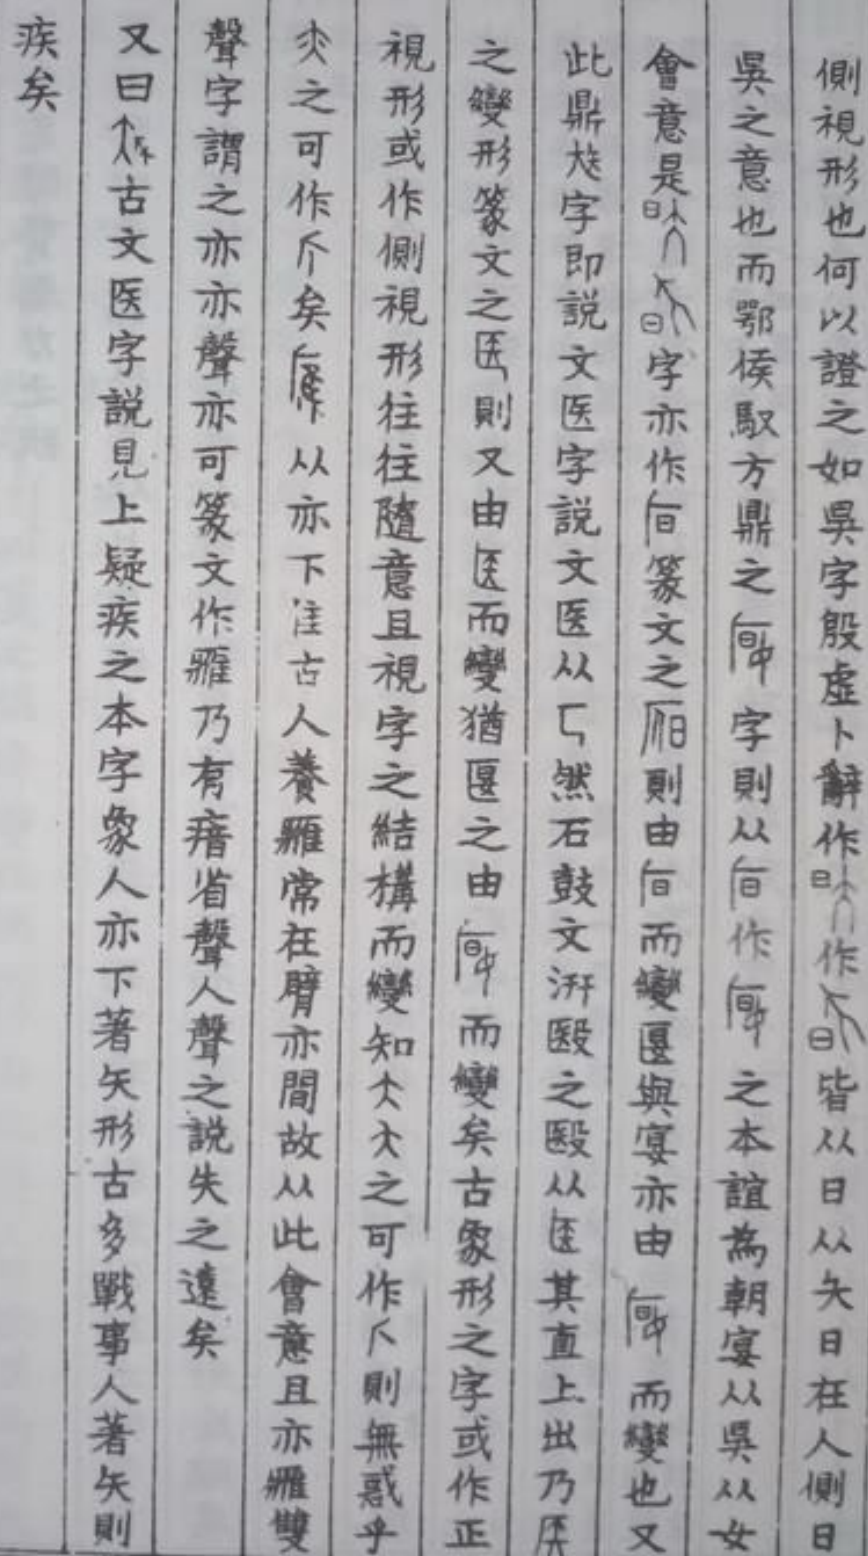 側視形也何以證之如吳字殷虛卜辭作作皆从日从夨日在人側日
吳之意也而鄂侯馭方鼎之字則从作之本誼為朝宴从吳从女
會意是字亦作篆文之則由而變匽與宴亦由而變也又
此鼎字即説文医字説文医从匚然石鼓文汧殹之殹从医其直上出乃医
之變形篆文之医則又由医而變猶匽之由而變矣古象形之字或作正
視形或作側視形往往隨意且視字之結構而變知大之可作則無惑乎
之可作矣从亦下隹古人養雁常在臂亦間故从此會意且亦雁雙
聲字謂之亦亦聲亦可篆文作雁乃有瘖省聲人聲之説失之遠矣
又曰古文医字説見上疑疾之本字象人亦下著矢形古多戰事人著矢則
疾矣